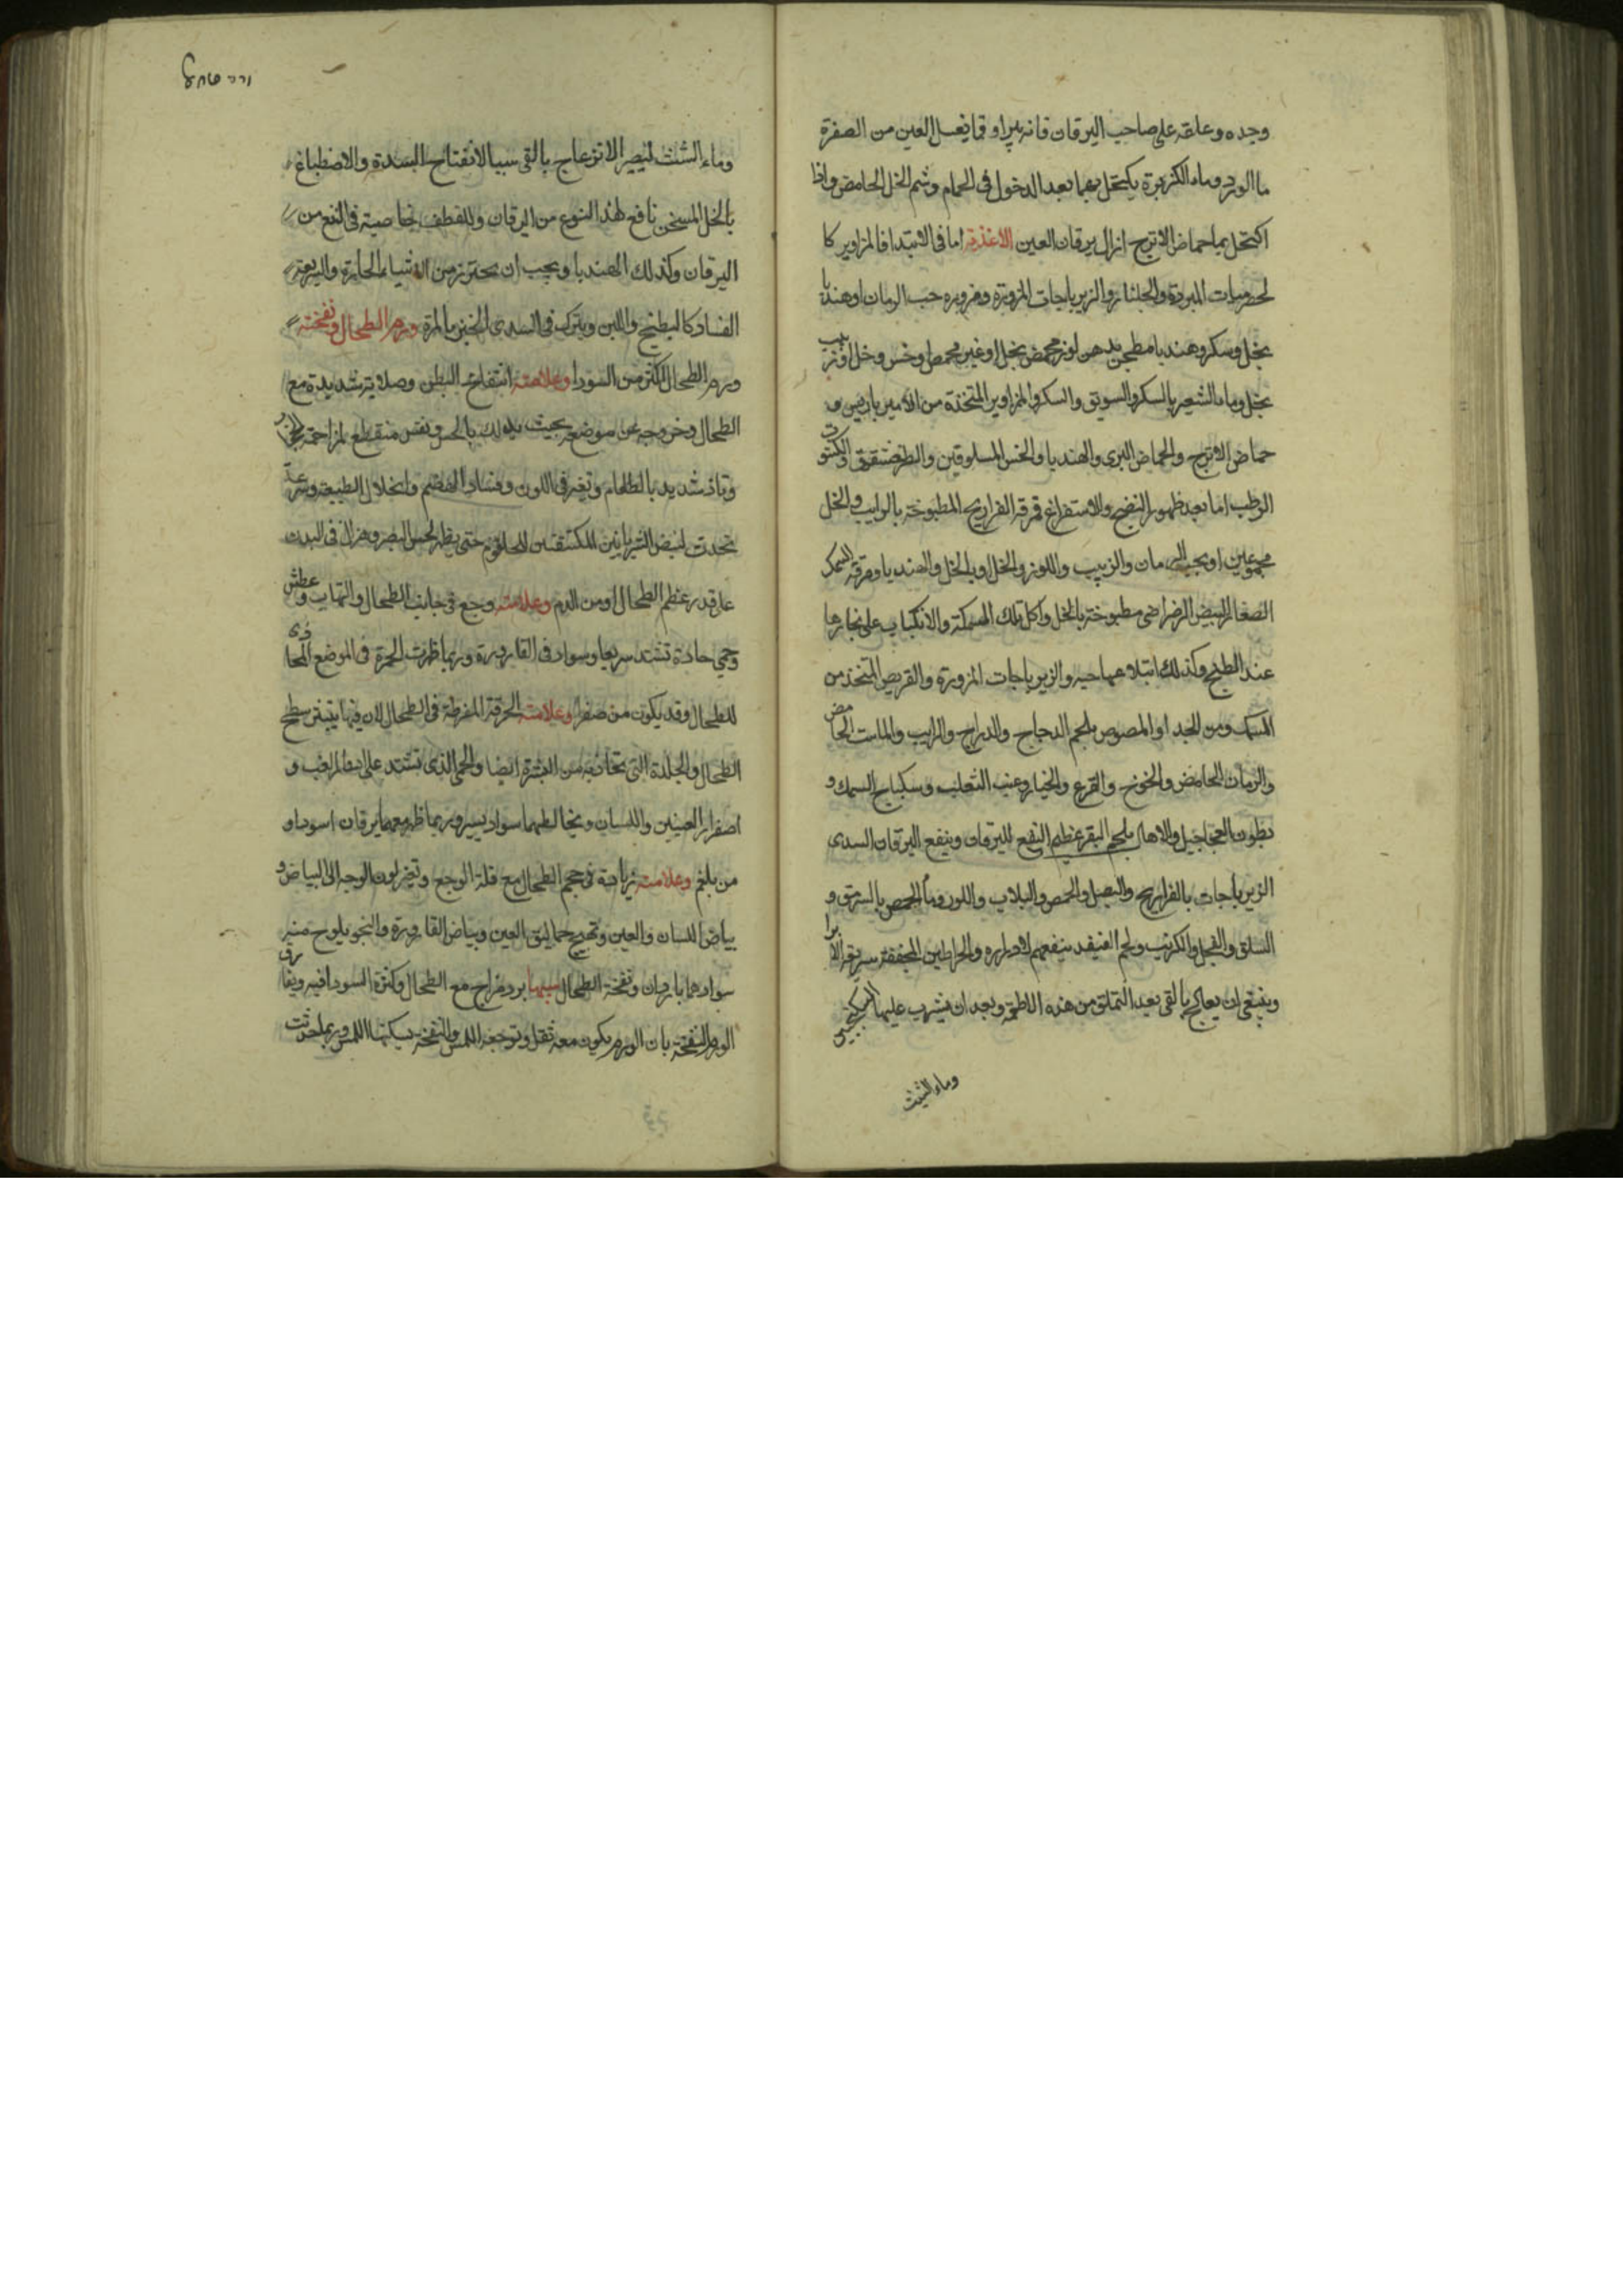 وجده وعلقه على صاحب اليرقان فانه يبراو قما يغسل العين من الصفرة
ما الورد وماء الكزبرة يكتحل بهما بعد الدخول فى الحمام وشم الخل الحامض واذا
اكتحل بما حماض الاترج ازال يرقان العين الاغذية اما فى الابتدا فالمزاوير كا
لحصرميات المبردة والجلنار والزيرباجات المزورة ومزوره حب الرمان اوهندبا
بخل وسكر وهندبا مطجن بدهن لوز محمض بخل اوغير محمض اوخس وخل اوزبيب
بخل وماء الشعير بالسكر والسويق والسكر والمزاوير المتخذة من الامير باريس و
حماض الاترج والحماض البرى والهندبا والخس المسلوقين والكشوت
الرطب اما بعد ظهور النضج والاستفراغ فمرقة الفراريج المطبوخة بالرايب والخل
مجموعين اوبحب الرمان والزبيب واللوز والخل اوبالخل والهندبا ومرقة السمك
الصغار البيض الرضراضى مطبوخة بالخل واكل تلك السمكة والانكباب على بخارها
عند الطبخ وكذلك ابتلاعها حيه والزيرباجات المزورة والقريص المتخذ من
السمك ومن الجدا والمصوص بلحم الدجاج والدراج والرايب والماست الحامض
والرمان الحامض والخوخ والقرع والخيار وعنب الثعلب وسكباج السمك و
بطون العجاجيل والاهال بلحم البقر عظيم النفع لليرقان وينفع اليرقان السدى
الزيرباجات بالفراريج والبصل والحمص واللوز وما الحمص بالسرمق و
السلق والفجل والكرنب ولحم القنفد ينفعهم لادراره والخراطين المجففة سريعة الابرا
وينبغى ان يعالج بالقى بعد التملى من هذه الاطعمة وبعد ان يشرب عليها السكنجبين
وماء الشبت
وماء الشبث ليصير الانزعاج بالقى سببا لانفتاح السدة والاصطباغ
بالخل المسخن نافع لهذا النوع من اليرقان وللقطف خاصية فى النفع من
اليرقان وكذلك الهندبا ويجب ان يحترز من الاشياء الحارة والسريعة
الفساد كالبطيخ واللبن ويترك فى السدى الخبز بالمرة ورم الطحال ونفخته
ورم الطحال اكثره من السودا وعلامته انتفاخ البطن وصلابة شديدة مع
الطحال وخروجه عن موضعه بحيث يدرك بالحس ونفس منقطع لمزاحمة الحجاب
وتاذ شديد بالطعام وتغير فى اللون وفساد الهضم وانحلال الطبيعة وسرعة
تحدث لنبض الشريانين المكتنفتين للحلقوم حتى يظهر لحس البصر وهزال فى البدن
على قدر عظم الطحال اومن الدم وعلامته وجع فى جانب الطحال والتهاب وعطش
وحمى حادة تشتد سريعا وسواد فى القارورة وربما ظهرت الحمرة فى الموضع المحاذى
للطحال وقد يكون من صفرا وعلامته الحرقة المفرطة فى الطحال لان فيها يتبثر سطح
الطحال والجلدة التى تحاذيه من البشرة ايضا والحمى الذى تشتد على ادوار الغب و
اصفرار العينين واللسان ويخالطهما سواد يسير وربما ظهر معهما يرقان اسود او
من بلغم وعلامته زيادة فى حجم الطحال مع قلة الوجع وتغير لون الوجه الى البياض و
بياض اللسان والعين وتهيج حماليق العين وبياض القارورة والنجو يلوح منه
سوادهما باردان ونفخة الطحال سببها برد مزاج مع الطحال وكثرة السودا فيه ويفارق
الورم النفخة بان الورم يكون معه ثقل وتوجعه اللمس والنفخة يسكنها اللمس وربما حدثت